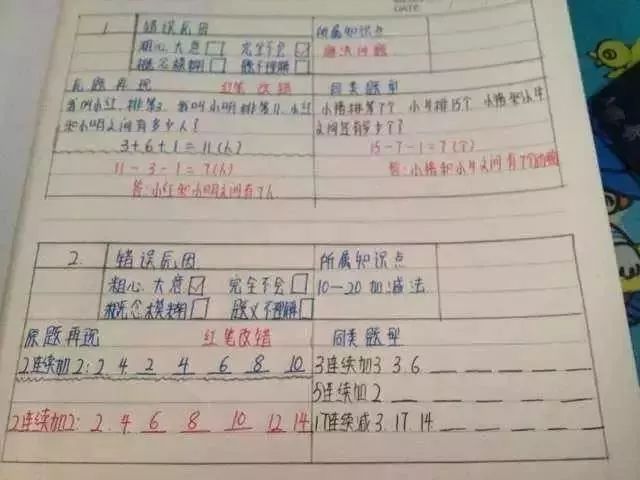 DATE
1 错误原因 所属知识点
粗心大意 完全不会 ✓
概念模糊 题不理解
减法问题
原题再现 红笔改错 同类题型
我叫小红,排第3,我叫小明排第11,小红
和小明之间有多少人?
3+6+1=11(人)
11-3-1=7(人)
答:小红和小明之间有7人
小猪排第7个 小牛排15个 小猪和小牛
之间还有多少个?
15-7-1=7(个)
答:小猪和小牛之间有7个动物
2. 错误原因 所属知识点
粗心大意 ✓ 完全不会 10—20加减法
概念模糊 题义不理解
原题再现 红笔改错 同类题型
2连续加2: 2 4 2 4 6 8 10
2连续加2: 2 4 6 8 10 12 14
3连续加3 3 6
5连续加2
17连续减3 17 14